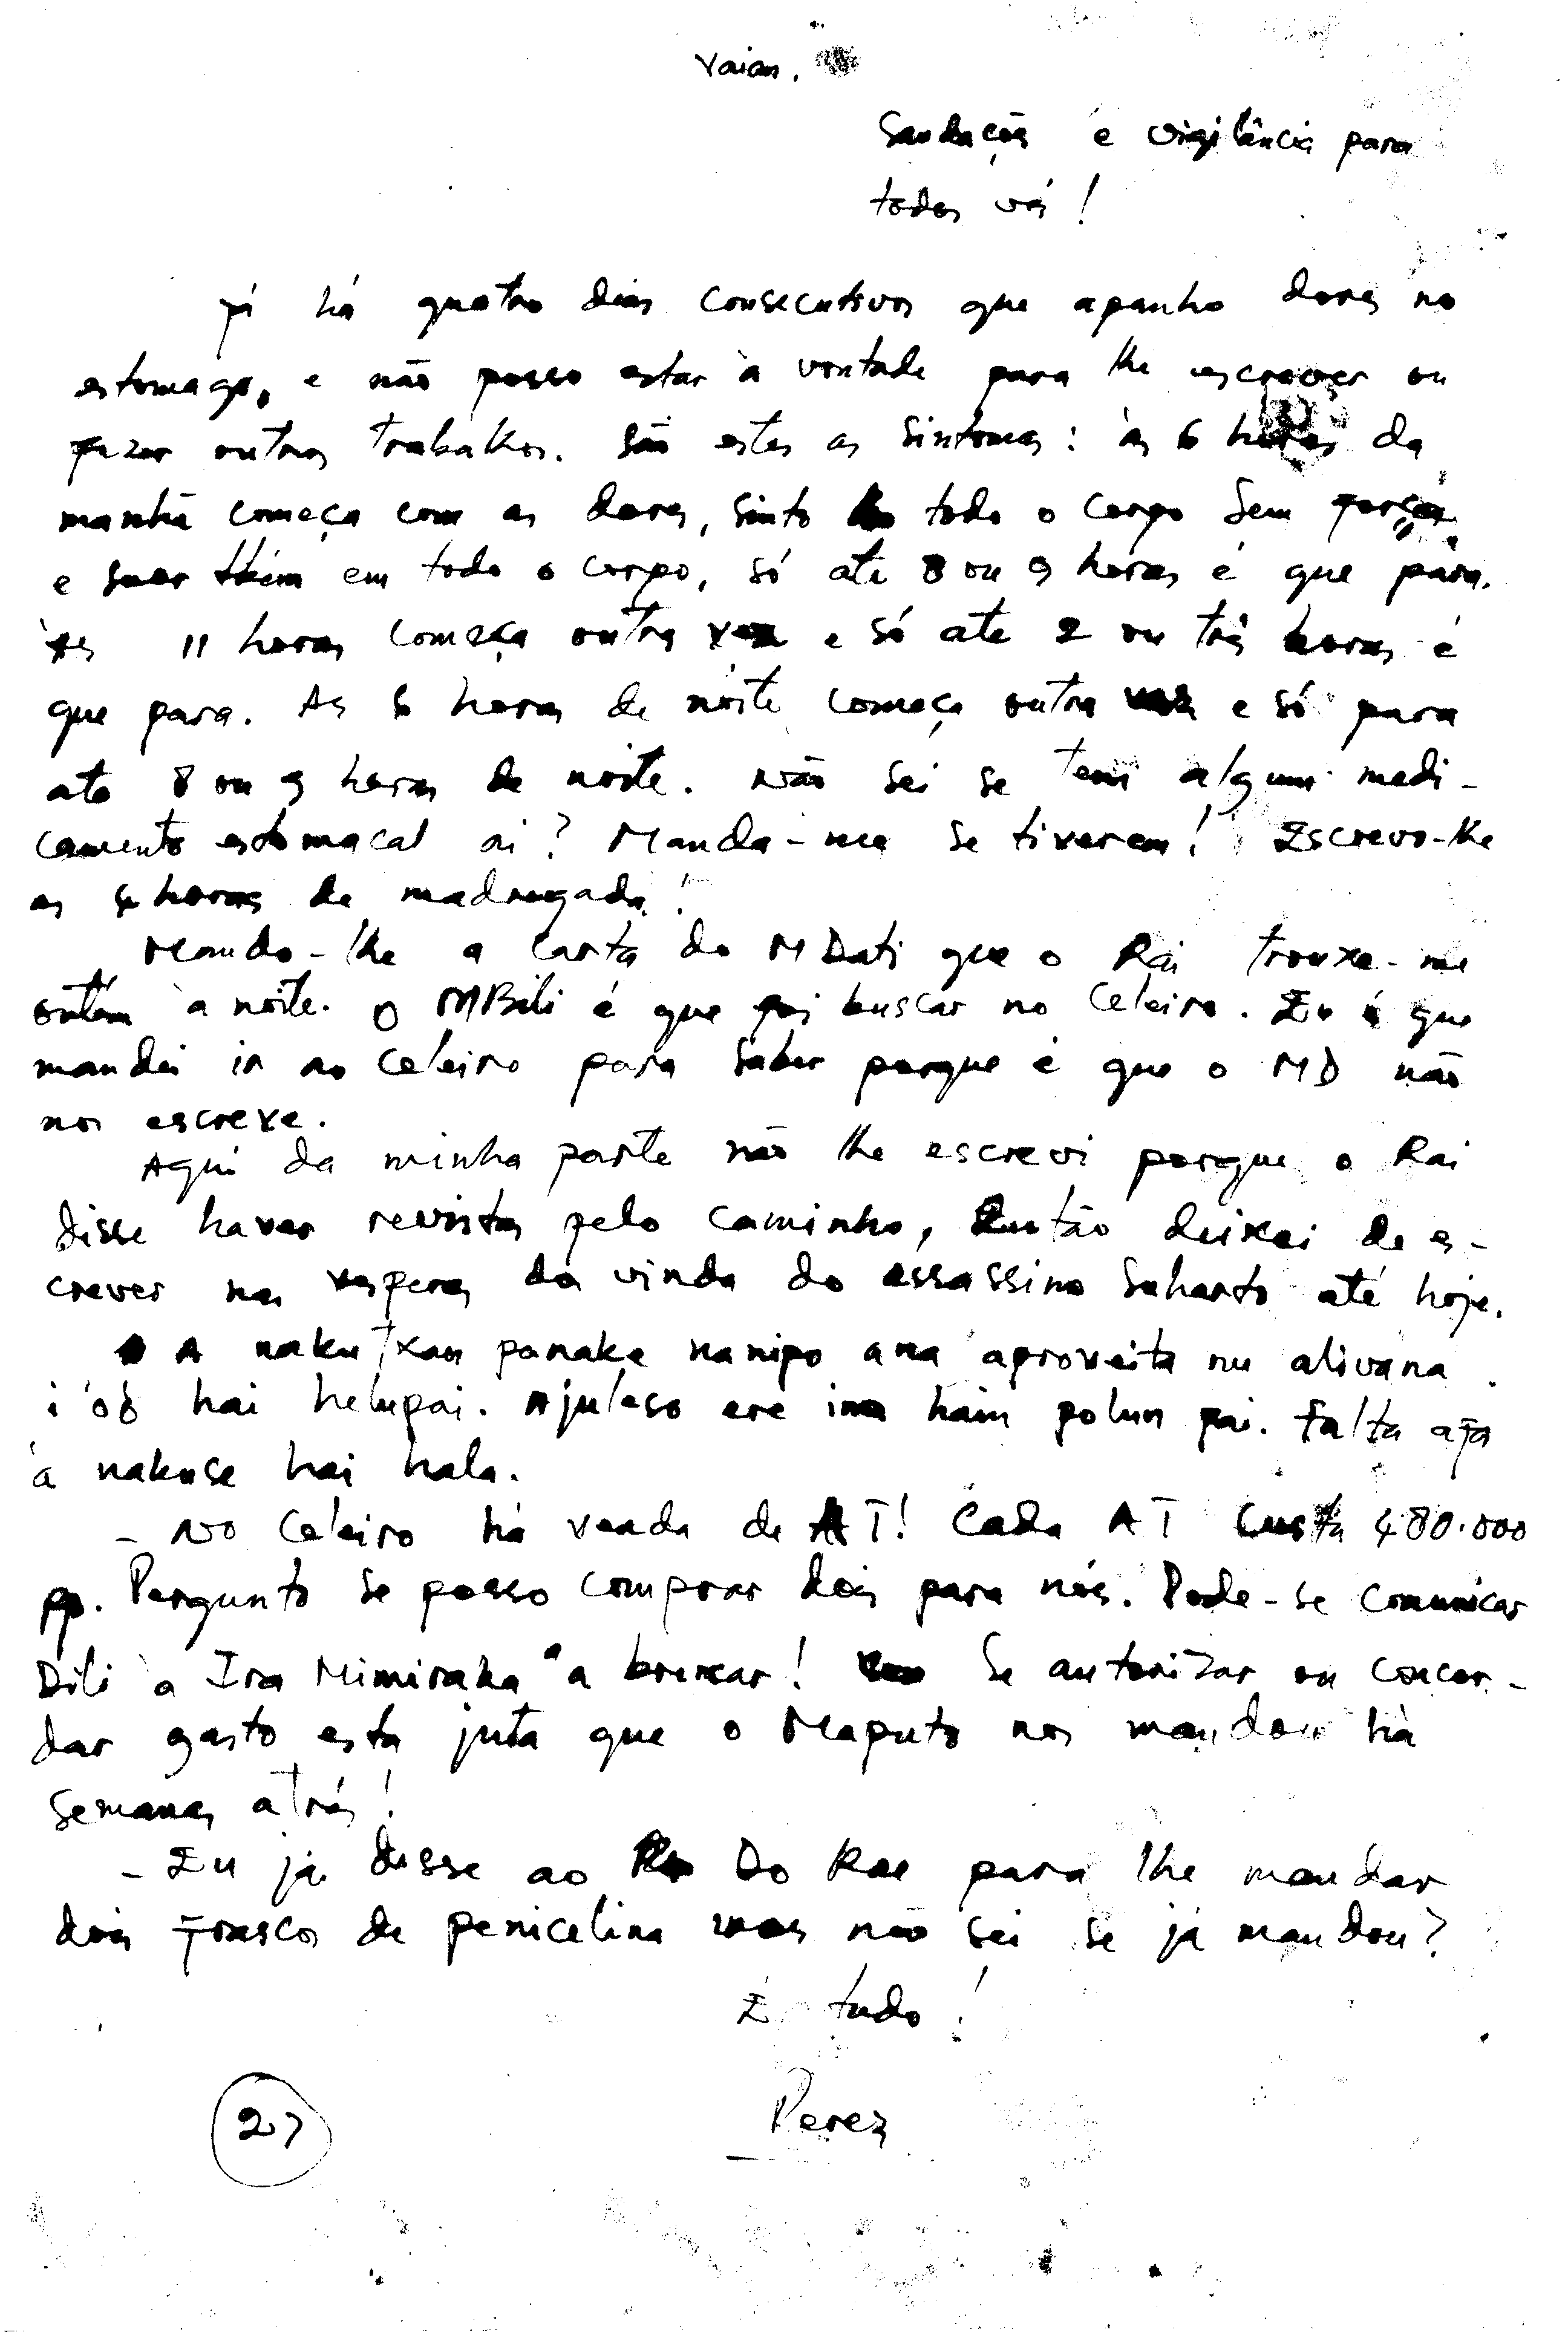 Vaian.
Saudações e vigilância para
todos vós!
Já há quatro dias consecutivos que apanho dores no
estomago, e não posso estar à vontade para lhe escrever ou
fazer outros trabalhos. São estes os sintomas: às 6 horas da
manhã começa com as dores, sinto todo o corpo sem forças
e suor tbém em todo o corpo, só ate 8 ou 9 horas é que pára.
Às 11 horas começa outra vez e só ate 2 ou três horas é
que para. As 6 horas de noite começa outra vez e só para
ate 8 ou 9 horas de noite. Não sei se tem algum medi-
camento estomacal ai? Manda-me se tiverem! Escrevo-lhe
as 4 horas de madrugada!
Mando-lhe a carta do MDati que o Rai trouxe-me
ontém à noite. O MBili é que foi buscar no Celeiro. Eu é que
mandei ir ao Celeiro para saber porque é que o MD não
nos escreve.
Aqui da minha parte não lhe escrevi porque o Rai
disse haver revistas pelo caminho, Então deixei de es-
crever nas vesperas da vinda do assassino Suharto até hoje.
A naku Txau panake nanipo ana aproveita nu alivana.
i'oo hai helupai. Ajuleso ere ina haim polun pai. Falta afa
a nakuse hai hala.
- No Celeiro há venda de AT! Cada AT custa 480.000
pp. Pergunto se posso comprar dois para nós. Pode-se comunicar
Dili a Ira Mimiraka a brincar! Se autorizar ou concor-
dar gasto esta juta que o Maputo nos mandou há
semanas atrás!
- Eu já disse ao Do Rae para lhe mandar
dois frascos de penicelina mas não sei se já mandou?
É tudo!
Perez
27